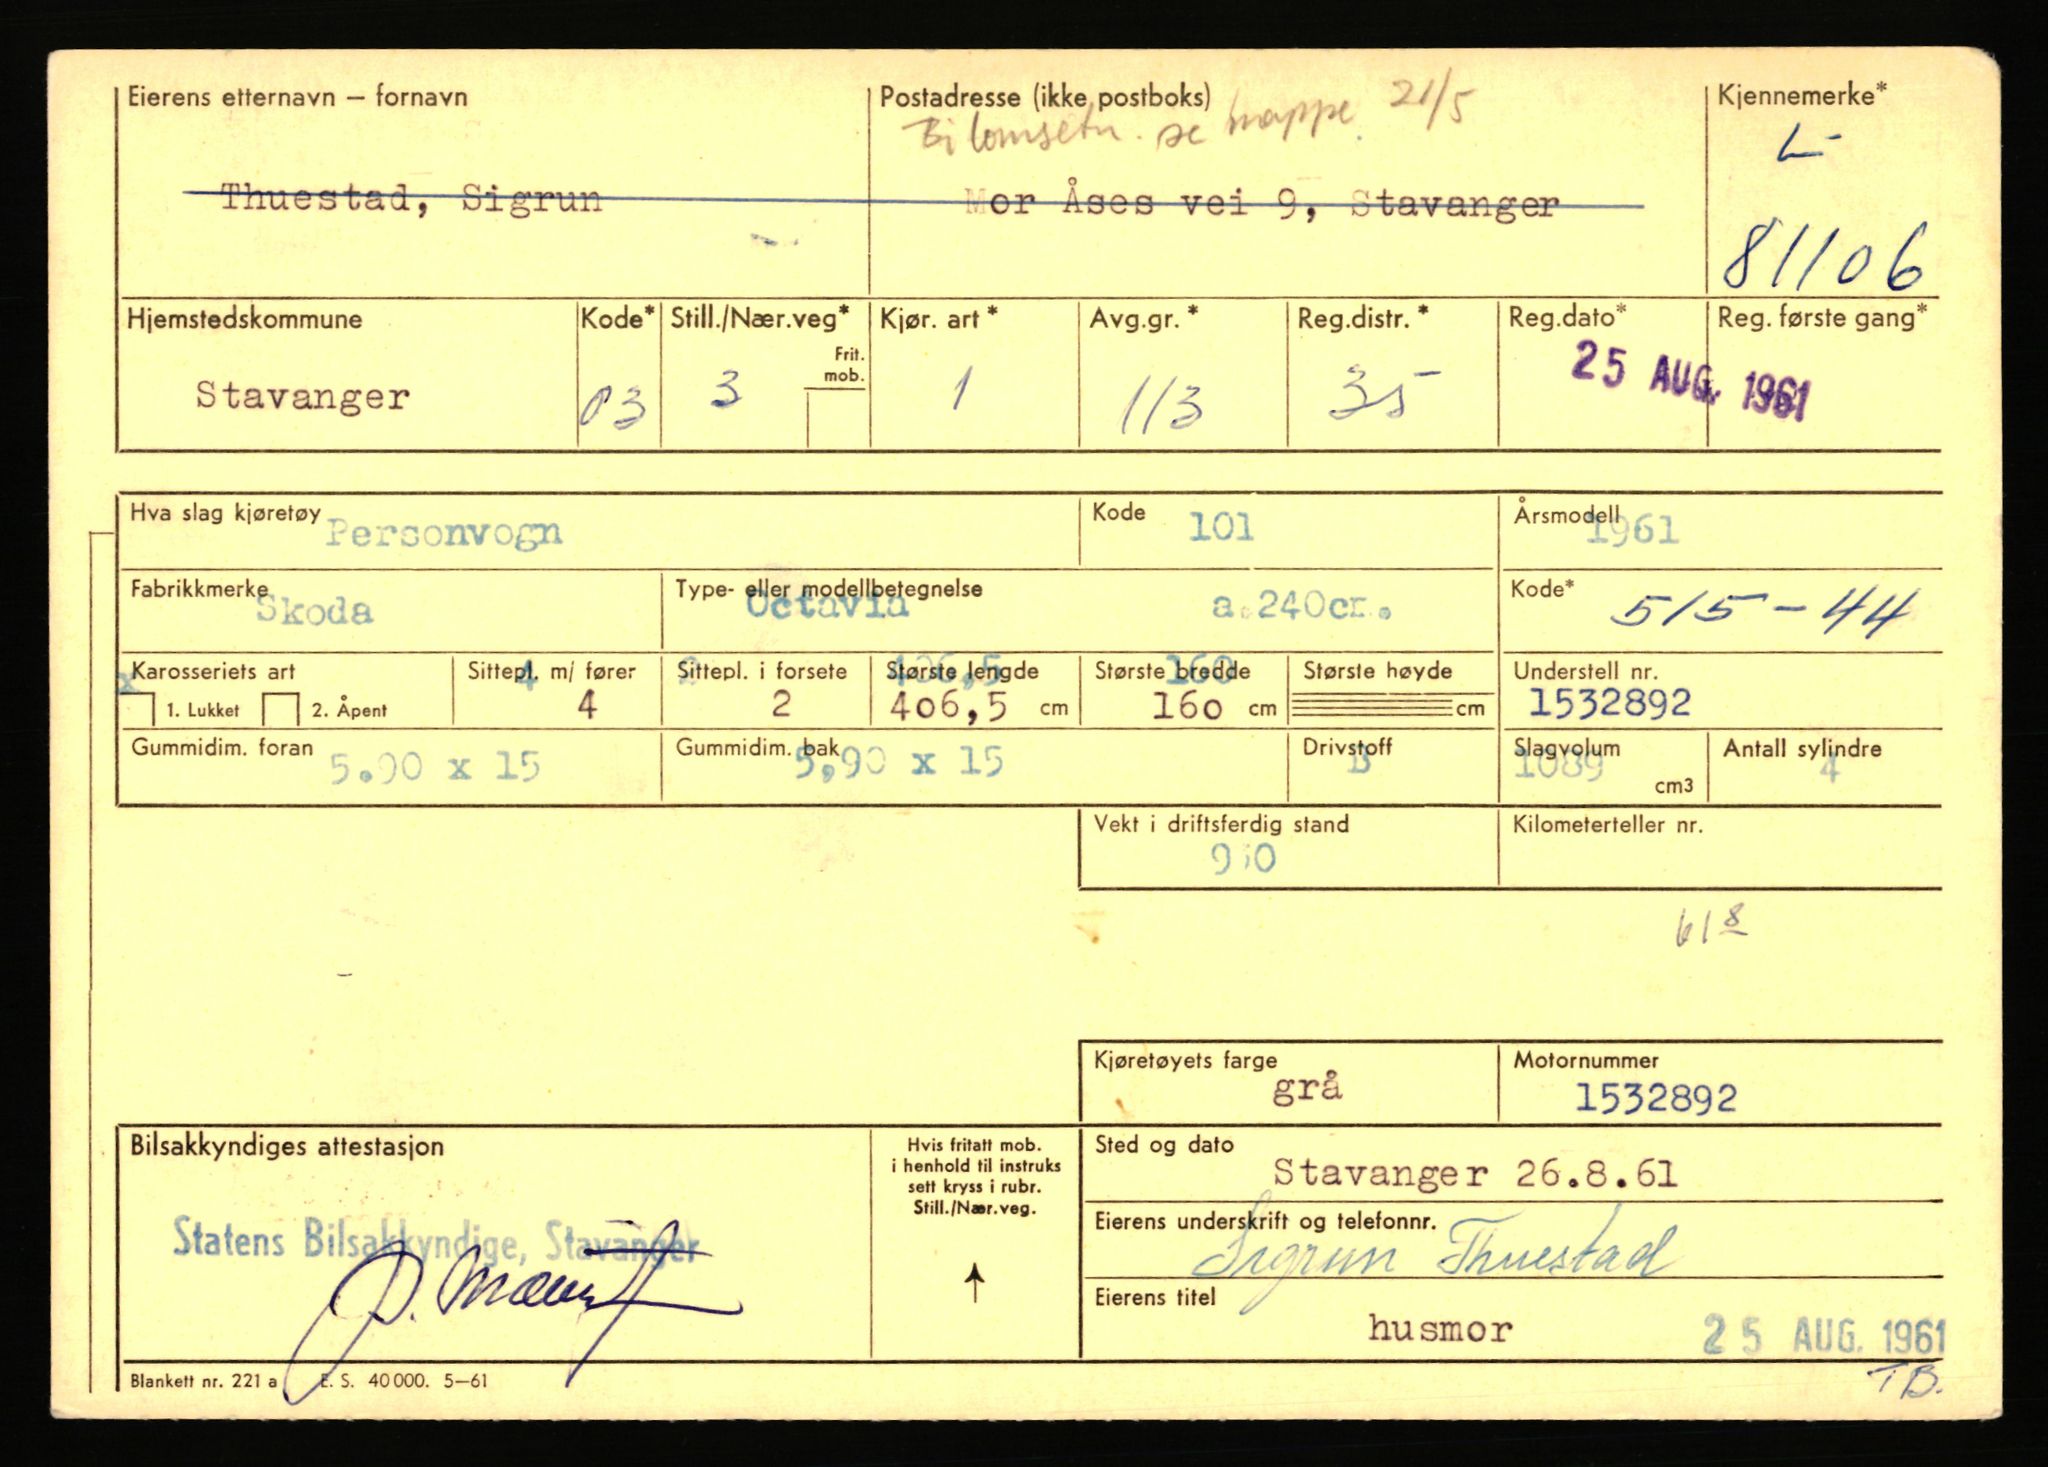 Eierens etternavn – fornavn
Postadresse (ikke postboks)
Kjennemerke*
Bilomsetn. se mappe 21/5
L-
Thuestad, Sigrun
Mor Åses vei 9, Stavanger
81106
Hjemstedskommune
Kode*
Still./Nær.veg*
Kjør. art *
Avg.gr. *
Reg.distr. *
Reg.dato*
Reg. første gang*
Frit. mob.
Stavanger
03
3
1
113
35
25 AUG. 1961
Hva slag kjøretøy
Personvogn
Kode
101
Årsmodell
1961
Fabrikkmerke
Skoda
Type- eller modellbetegnelse
Octavia
a.240cm.
Kode*
515-44
Karosseriets art
x
1. Lukket
2. Åpent
Sittepl. m/ fører
4
4
Sittepl. i forsete
2
2
Største lengde
406,5
406,5 cm
Største bredde
160
160 cm
Største høyde
cm
Understell nr.
1532892
Gummidim. foran
5.90 x 15
Gummidim. bak
5,90 x 15
Drivstoff
B
Slagvolum
1089
cm3
Antall sylindre
4
Vekt i driftsferdig stand
Kilometerteller nr.
61 8
Kjøretøyets farge
grå
Motornummer
1532892
Bilsakkyndiges attestasjon
Statens Bilsakkyndige, Stavanger
Hvis fritatt mob.
i henhold til instruks
sett kryss i rubr.
Still./Nær.veg.
Sted og dato
Stavanger 26.8.61
Eierens underskrift og telefonnr.
Sigrun Thuestad
Eierens titel
husmor
25 AUG. 1961
TB.
Blankett nr. 221 a E. S. 40 000. 5–61